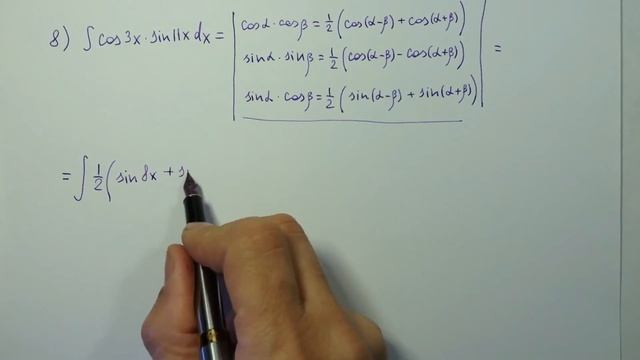 8) ∫ cos3x · sin11x dx = | cosα · cosβ = 1/2 (cos(α-β) + cos(α+β)) | =
sinα · sinβ = 1/2 (cos(α-β) - cos(α+β))
sinα · cosβ = 1/2 (sin(α-β) + sin(α+β))
= ∫ 1/2 (sin8x + s